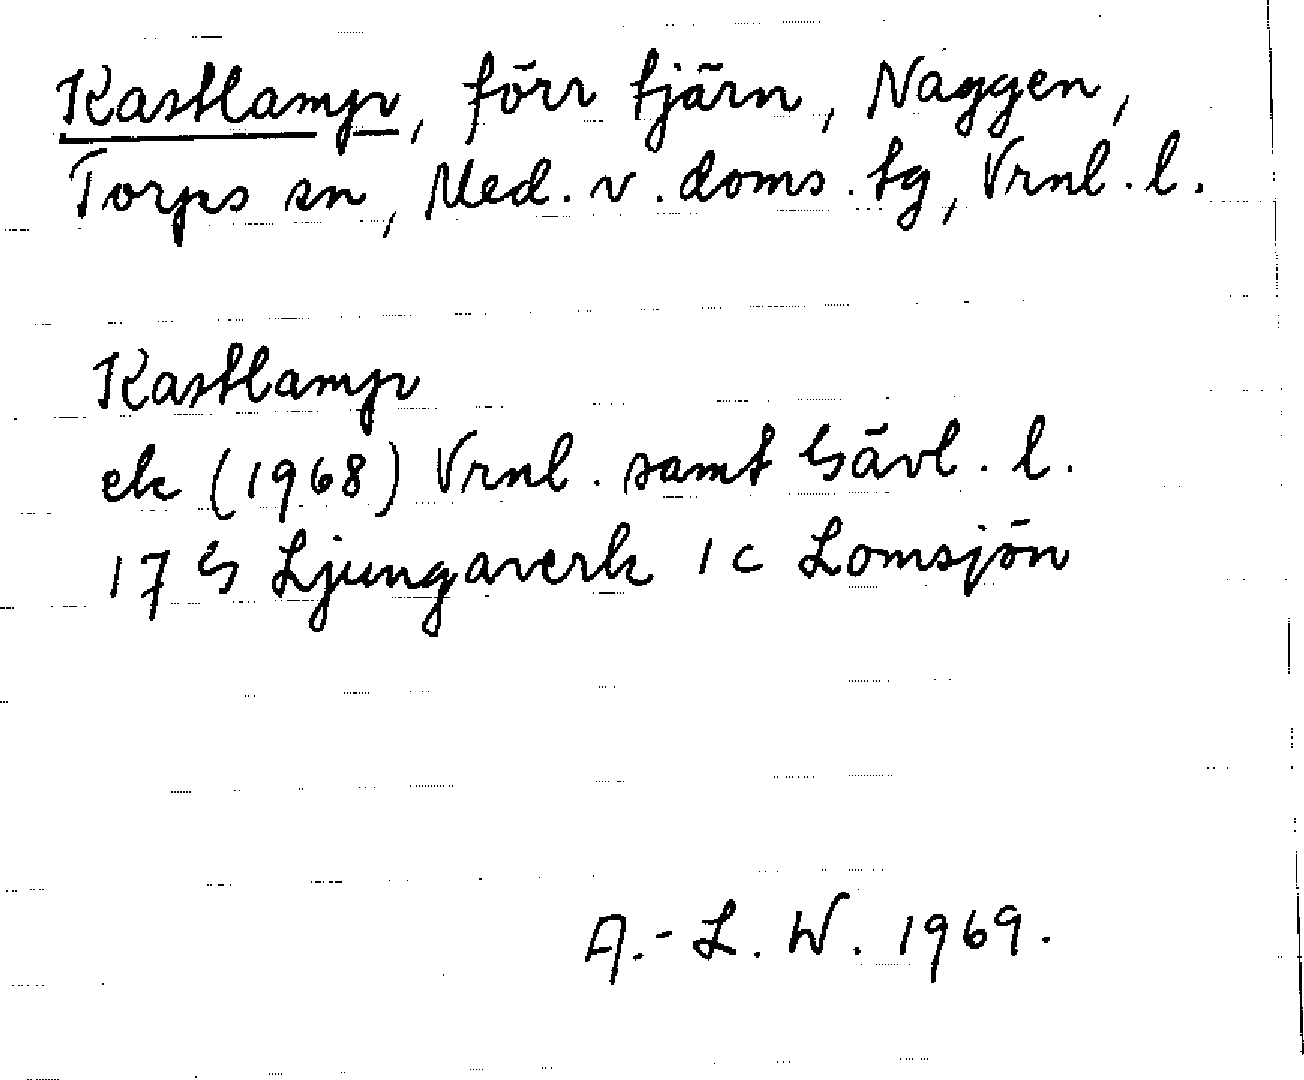 Kastlamp, förr tjärn, Naggen,
Torps sn, Med. v. doms. tg, Vrnl. l.
Kastlamp
ek (1968) Vrnl. samt Gävl. l.
17 G Ljungaverk 1 c Lomsjön
A.-L. W. 1969.